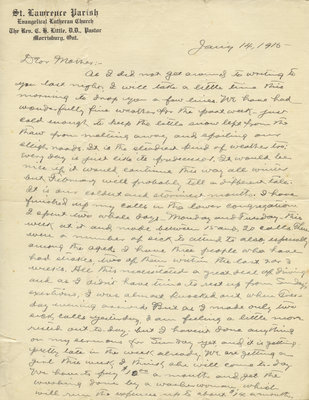 St. Lawrence Parish
Evangelical Lutheran Church
The Rev. C. H. Little, D.D., Pastor
Morrisburg, Ont.
Jany 14, 1915-
Dear Mother:-
As I did not get around to writing to
you last night, I will take a little time this
morning to drop you a few lines. We have had
wonderfully fine weather for the past week- just
cold enough to keep the little snow left from the
thaw from melting away and spoiling our
sleigh roads. It is the steadiest kind of weather too.
Every day is just like its predecessor. It would be
nice if it would continue this way all winter
but February will probably tell a different tale.
It is our coldest and stormiest month. I have
finished up my calls in the lower congregation
I spent two whole days- Monday and Tuesday this
week at it and made between 15 and 20 calls. There
were a number of sick to attend to also especially
among the aged. I have three people who have
had strokes, two of them within the last 2 or 3
weeks. All this necessitates a great deal of driving
and as I didn't have time to rest up from Sunday's
exertions, I was about knocked out when Tues-
day evening came round. But as I made only two
sick calls yesterday, I am feeling a little more
rested out to day, but I haven't done anything
on my sermons for Sunday yet and it is getting
pretty late in the week already. We are getting a
girl this week, I think she will come to day.
We have to pay $10.00 a month and get the
washing done by a washerwoman, which
will run the expense up to about $12 a month,